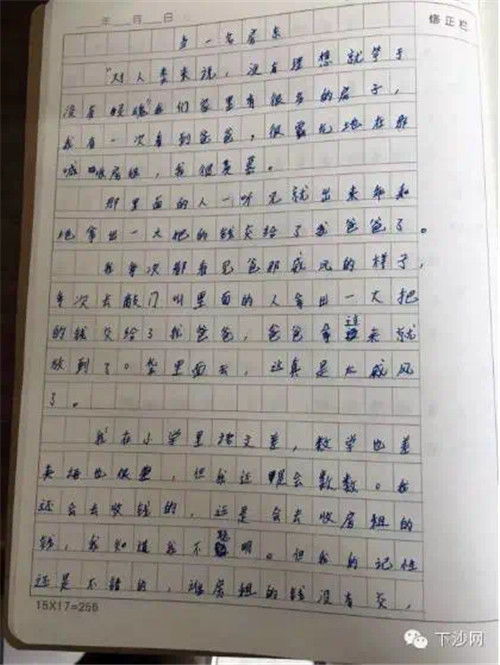 年 月 日
修正栏
当一名房东
"对人类来说,没有理想就等于
没有灵魂"我们家里有很多的房子,
我有一次看到爸爸,很霸气地在那
喊收房租,我很羡慕。
那里面的人一听见就出来乖乖
地拿出一大把的钱交给了我爸爸了。
我每次都看见爸那威风的样子,
每次去敲门叫里面的人拿出一大把
的钱交给了我爸爸,爸爸拿过来就
放到了口袋里面去,这真是太威风
了。
我在小学里语文差,数学也差
英语也很差,但我还是会数数。我
还会去收钱的,还是会去收房租的
钱,我知道我不聪明。但我的记性
还是不错的,谁房租的钱没有交,
15X17=255
下沙网